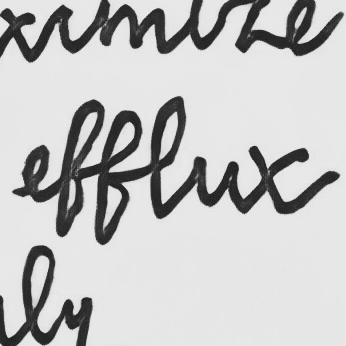 ximize
efflux
ly